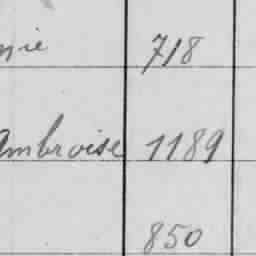 718
Ambroise 1189
850